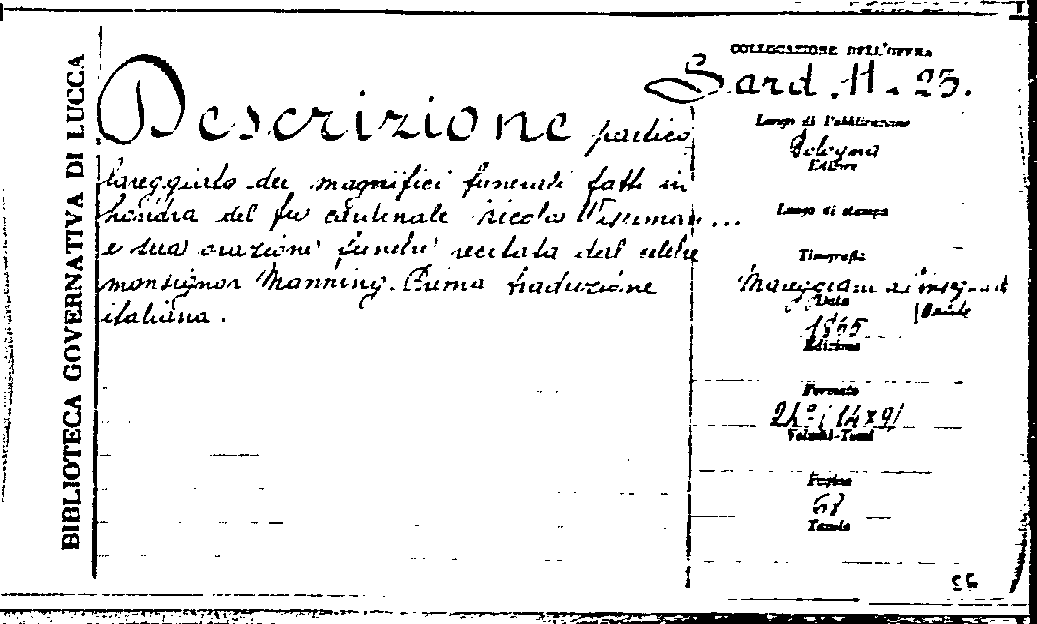 BIBLIOTECA GOVERNATIVA DI LUCCA
Descrizione partico
lareggiata dei magnifici funerali fatti in
Londra del fu cardinale Nicolo Wiseman ...
e sua orazione funebre recitata dal celebre
monsignor Manning. Prima traduzione
italiana.
COLLOCAZIONE DELL'OPERA
Sard. 11. 23.
Luogo di Pubblicazione
Bologna
Editore
Luogo di stampa
Tipografia
Mareggiani
Data
1865
Edizione
Formato
24º (14x9)
Volumi-Tomi
Pagine
68
Tavole